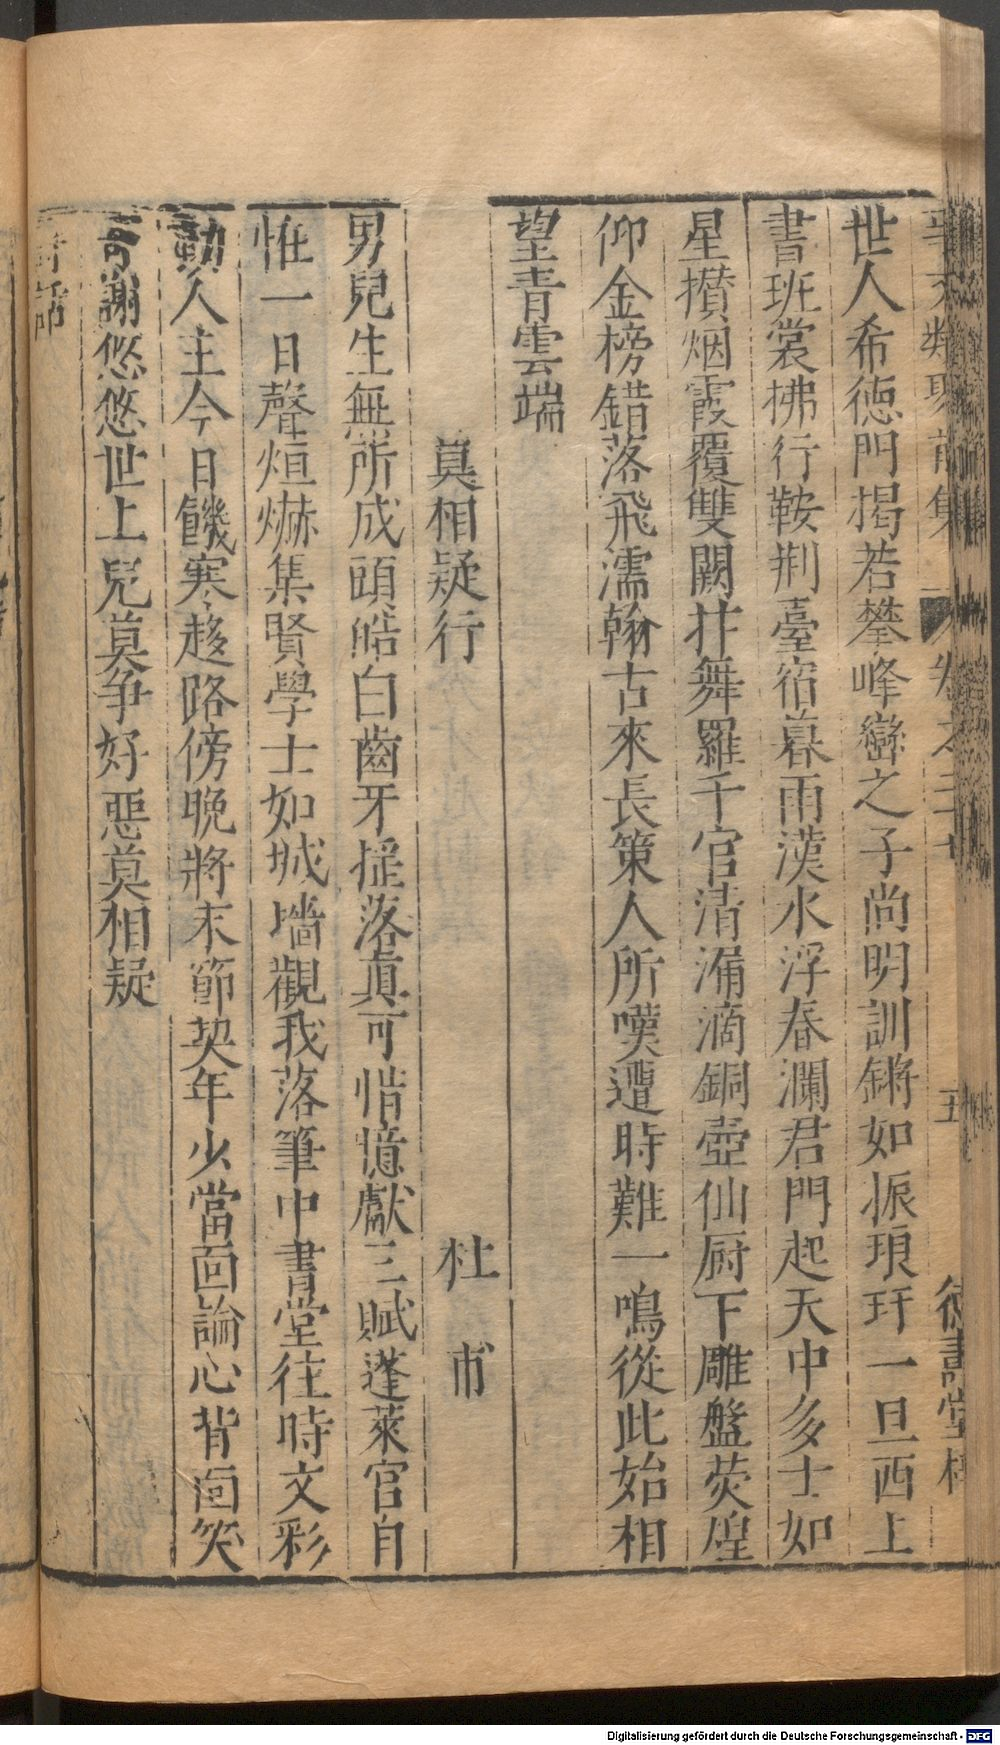 事文類聚前集 卷之三十 五 德壽堂梓
世人希德門揭若攀峰巒之子尚明訓鏘如振琅玕一旦西上
書班裳拂行鞍荆臺宿暮雨漢水浮春瀾君門起天中多士如
星攅烟霞覆雙闕抃舞羅千官清漏滴銅壺仙厨下雕盤荧煌
仰金榜錯落飛濡翰古來長策人所嘆遭時難一鳴從此始相
望青雲端
莫相疑行 杜甫
男兒生無所成頭皓白齒牙揺落真可惜憶獻三賦蓬萊官自
恠一日聲烜爀集賢學士如城墻觀我落筆中書堂往時文彩
動人主今日饑寒趍路傍晚將末節契年少當面論心背面笑
寄謝悠悠世上兒莫争好惡莫相疑
詩話
Digitalisierung gefördert durch die Deutsche Forschungsgemeinschaft - DFG